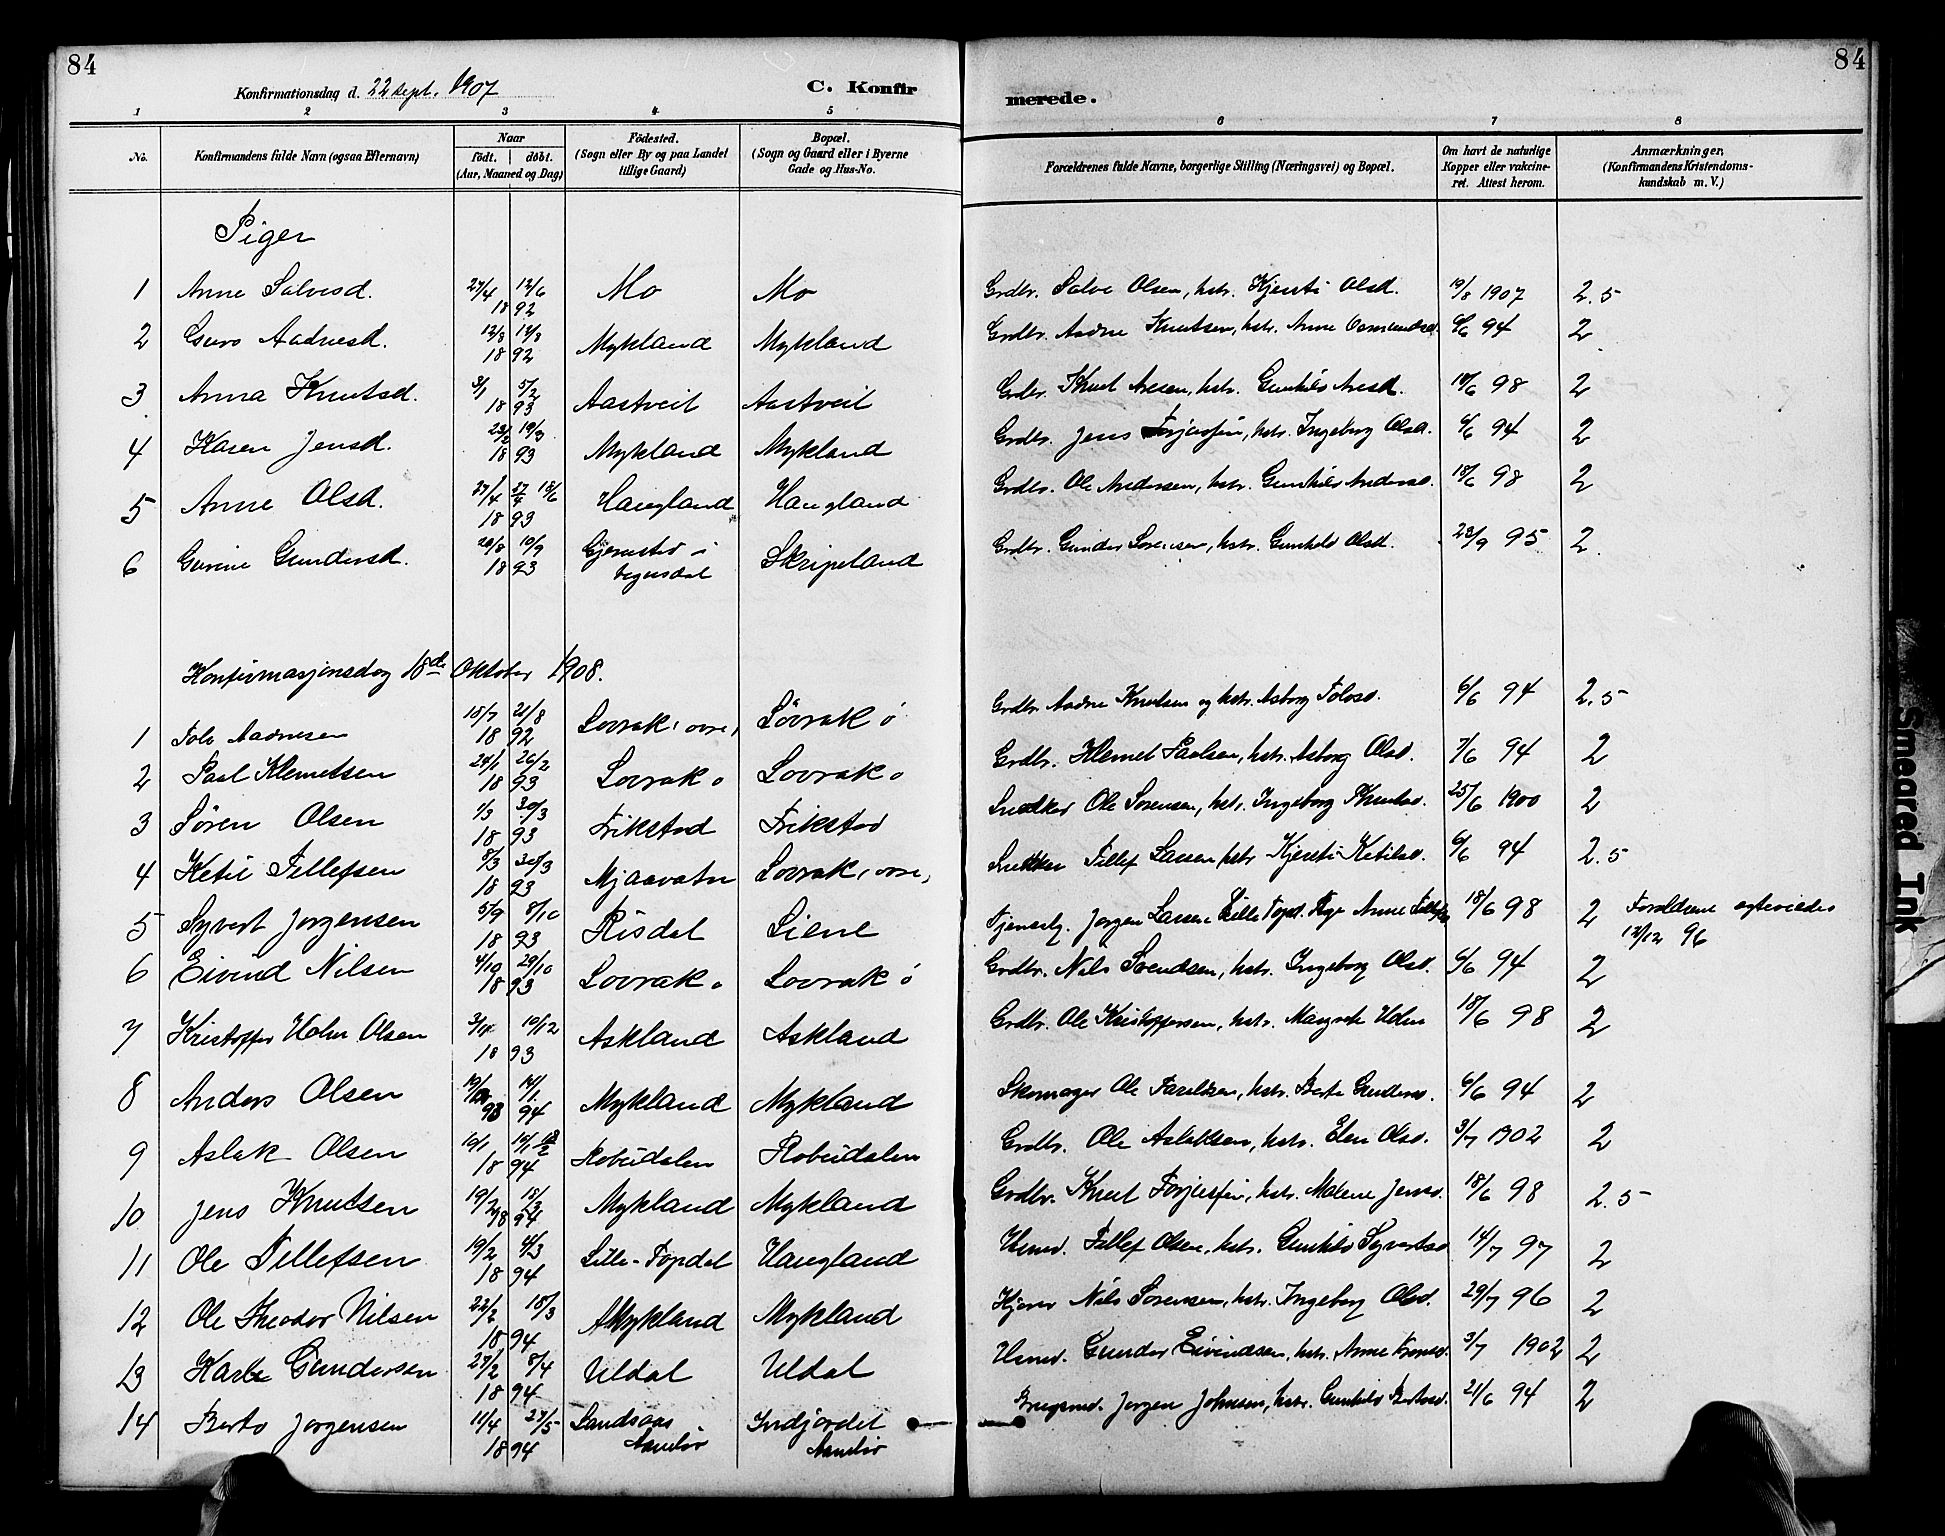 84
84
Konfirmationsdag d. 22 sept. 1907
C. Konfir
merede.
1 2 3 4 5 6 7 8
No.
Konfirmandens fulde Navn (ogsaa Efternavn)
Naar
födt. döbt.
(Aar, Maaned og Dag)
Födested.
(Sogn eller By og paa Landet tillige Gaard)
Bopæl.
(Sogn og Gaard eller i Byerne Gade og Hus-No.
Forældrenes fulde Navne, borgerlige Stilling (Næringsvei) og Bopæl.
Om havt de naturlige Kopper eller vakcineret. Attest herom.
Anmærkninger,
(Konfirmandens Kristendomskundskab m. V.)
Piger
1 Anne Salvesd. 27/4 12/6 1892 Mo Mo Grdbr. Salve Olsen, hstr. Kjersti Olsd. 19/8 1907 2.5
2 Guro Aadnesd. 12/3 17/3 1892 Mykland Mykland Grdbr. Aadne Knutsen, hstr. Anne Osmundsd. 6/6 94 2
3 Anna Knutsd. 3/1 5/2 1893 Aastveit Aastveit Grdbr. Knut Aresen, hstr. Gunhild Aresd. 18/6 98 2
4 Karen Jensd. 23/2 19/3 1893 Mykland Mykland Grdbr. Jens Torjussen, hstr. Ingeborg Olsd. 6/6 94 2
5 Anne Olsd. 27/4 27/4 18/6 1893 Haugland Haugland Grdbr. Ole Andersen, hstr. Gunhild Andersd. 18/6 98 2
6 Gurine Gundersd. 20/8 10/9 1893 Gjerustad i Vegusdal Skripeland Grdbr. Gunder Sørensen, hstr. Gunhild Olsd. 23/9 95 2.
Konfirmasjonsdag 18de Oktober 1908.
1 Tolv Aadnesen 15/7 21/8 1892 Lovrak, ovre, Løvrak ö Grdbr. Aadne Knutsen og hstr. Asborg Tolvsd. 6/6 94 2.5
2 Paal Klemetsen 24/1 26/2 1893 Lovrak o Lovrak o Grdbr. Klemet Paalsen, hstr. Asborg Olsd. 7/6 94 2
3 Søren Olsen 1/3 30/3 1893 Frikstad Frikstad Snedker Ole Sørensen, hstr. Ingeborg Knutsd. 25/6 1900 2
4 Ketil Tellefsen 8/3 30/3 1893 Mjaavatn Lovrak, ovre, Snekker Tellef Larsen hstr Kjersti Ketilsd. 6/6 94 2.5
5 Syvert Jørgensen 5/9 8/10 1893 Risdal Liene Tjenestg. Jørgen Larsen Lille Topd. Pige Anne Tellefsd 18/6 98 2 Foreldrene egteviedes 12/12 96
6 Eivind Nilsen 4/10 29/10 1893 Lovrak o Lovrak ö Grdbr. Nils Svendsen, hstr. Ingeborg Olsd. 6/6 94 2
7 Kristoffer Holm Olsen 3/11 10/12 1893 Askland Askland Grdbr. Ole Kristoffersen, hstr. Margrete Holm 18/6 98 2
8 Anders Olsen 19/12 93 14/1 94 Mykland Mykland Skomager Ole Taraldsen, hstr. Berte Gundersd. 6/6 94 2
9 Aslak Olsen 10/1 14/1 18/2 1894 Robudalen Robudalen Grdbr. Ole Aslaksen, hstr. Elen Olsd. 3/7 1902 2
10 Jens Knutsen 19/2 18/3 1894 Mykland Mykland Grdbr. Knut Torjussen, hstr. Malene Jensd. 18/6 98 2.5
11 Ole Tellefsen 19/2 4/3 1894 Lille-Topdal Haugland Husmd. Tellef Olsen, hstr. Gunhild Syvertsd 14/7 97 2
12 Ole Theodor Nilsen 22/2 18/3 1894 Mykland Mykland Nils Sørensen, hstr. Ingeborg Olsd. 29/7 96 2
13 Karl Gundersen 27/2 8/4 1894 Uldal Uldal Husmd. Gunder Eivindsen, hstr. Anne 3/7 1902 2
14 Berto Jørgensen 11/4 27/5 1894 Landsaas Aamlid Indjordet Aamlid Brugsmd. Jørgen Johnsen, hstr. Gunhild Bertosd. 21/6 94 2
Smeared Ink